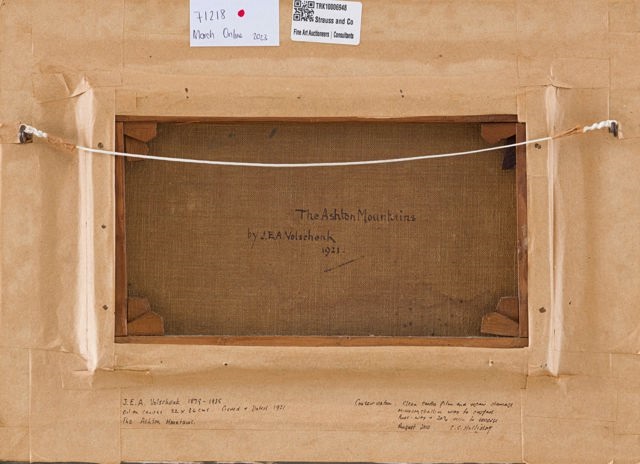 71218
March Online 2023
TRK10006948
Strauss and Co
Fine Art Auctioneers | Consultants
The Ashton Mountains
by J.E.A. Volschenk
1921.
J.E.A. Volschenk
Oil on canvas Signed + Dated 1921
The Ashton Mountains.
Conservation. Clean smoke film and repair damage
wax to
wax + 20%
August 2010